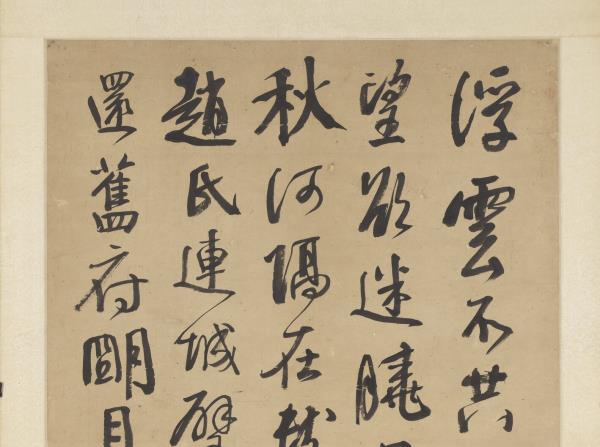 浮雲不共
望欲迷曉
秋河隔在數
趙氏連城璧
還舊府明月